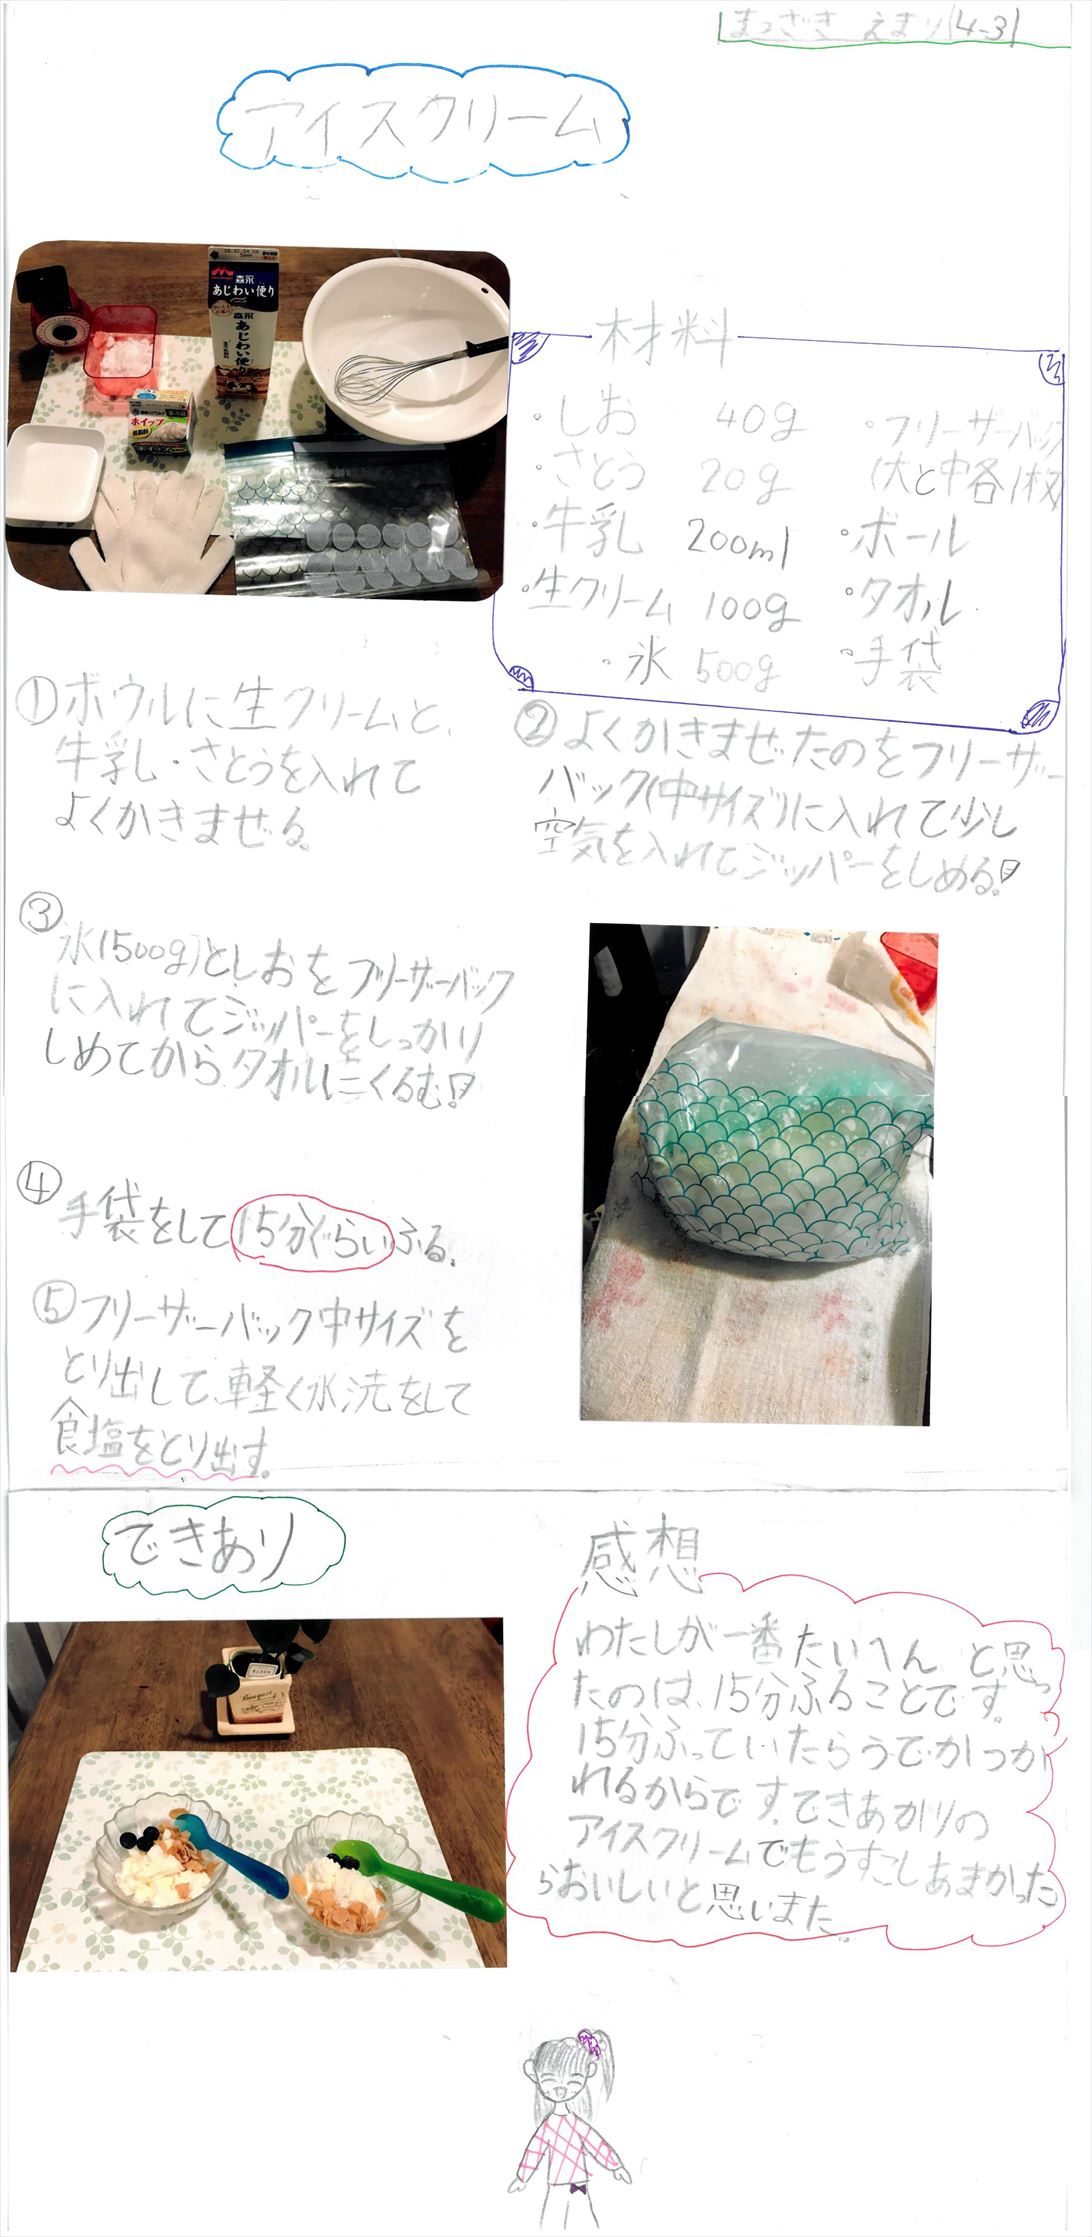 まつざき えまり 4-3
アイスクリーム
森永
あじわい便り
森永
あじわい便り
ホイップ
材料
・しお 40g
・さとう 20g
・牛乳 200ml
・生クリーム 100g
・氷 500g
・フリーザーバック
(大と中各1枚
・ボール
・タオル
・手袋
①ボウルに生クリームと、
牛乳・さとうを入れて
よくかきまぜる。
②よくかきまぜたのをフリーザー
バック(中サイズ)に入れて少し
空気を入れてジッパーをしめる!
③
氷(500g)としおをフリーザーバック
に入れてジッパーをしっかり
しめてから、タオルにくるむ!
④
手袋をして15分ぐらいふる。
⑤フリーザーバック中サイズを
とり出して、軽く水洗をして
食塩をとり出す。
できあり
Bouquet
感想
わたしが一番たいへんと思っ
たのは、15分ふることです。
15分ふっていたらうでがつか
れるからです。できあがりの
アイスクリームでもうすこしあまかった
らおいしいと思いまた。